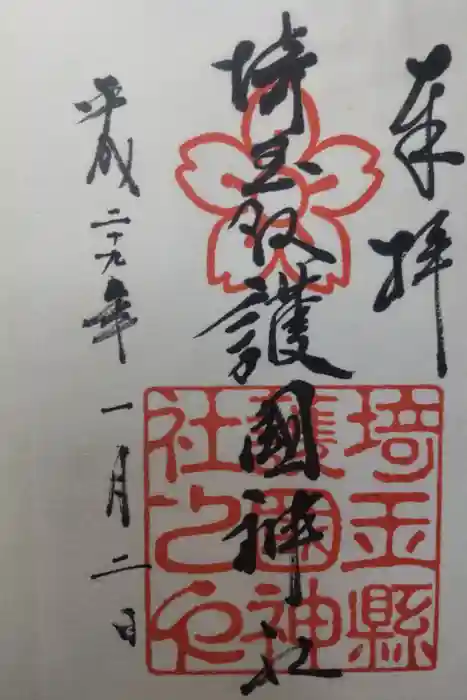 奉拝
埼玉縣護國神社
平成二十九年一月二日
埼玉縣
護國神
社之印